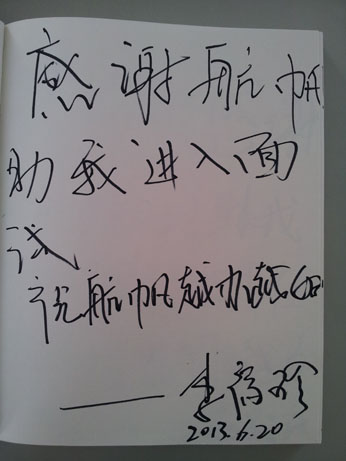 感谢航帆
助我进入面
试
祝航帆越办越好
——李
2013.6.20